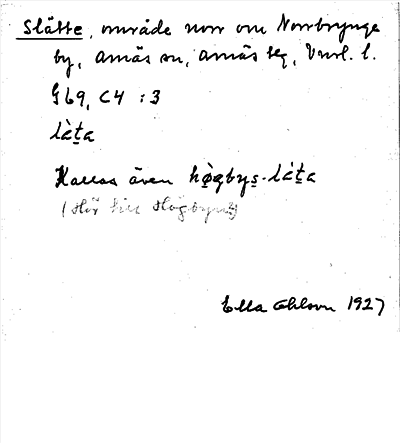 Slätte, område norr om Norrbrynge
by, Åmåls sn, Åmåls hg, Vrml. l.
G69, C4 : 3
làt̠a
Kallas även hø̀gbys̠-làt̠a
(Hör till Högbyn)
Ella Ohlson 1927